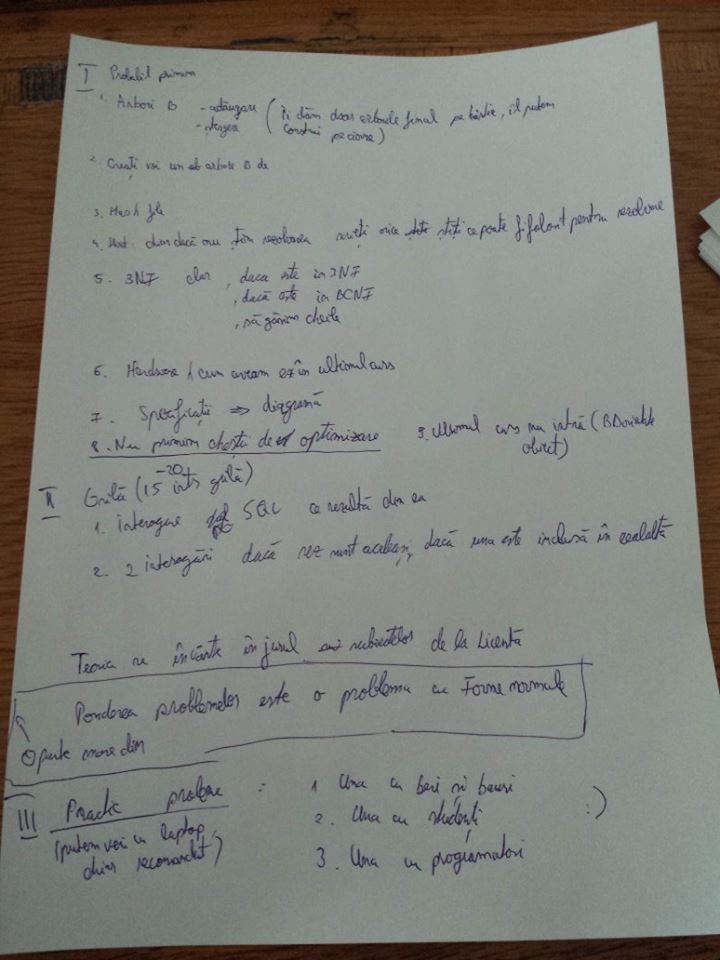 I Probabil primim
1. Arbori B - adăugare (Îi dăm doar arborele final pe hârtie, îl putem
- ștergere construi pe ciornă)
2. Creați voi un arbore B de
3. Hash file
4. chiar dacă nu știm rezolvarea scrieți orice știți ce poate fi folosit pentru rezolvare
5. 3NF clar, daca este in 3NF
, dacă este in BCNF
, să găsim cheile
6. Hardware / cum aveam ex în ultimul curs
7. Specificații => diagramă
8. Nu primim chestii de optimizare 9. Ultimul curs nu intră (BD orientate
obiect)
II Grilă (15-20 intr grilă)
1. interogare SQL ce rezultă din ea
2. 2 interogări dacă rez sunt aceleași, dacă una este inclusă în cealaltă
Teoria se învârte în jurul subiectelor de la Licență
Ponderea problemelor este o problema cu Forme normale
O parte mare din
III Practic probleme : 1 Una cu beri si baruri
(putem veni cu laptop, 2. Una cu studenți :)
chiar recomandat) 3. Una cu programatori